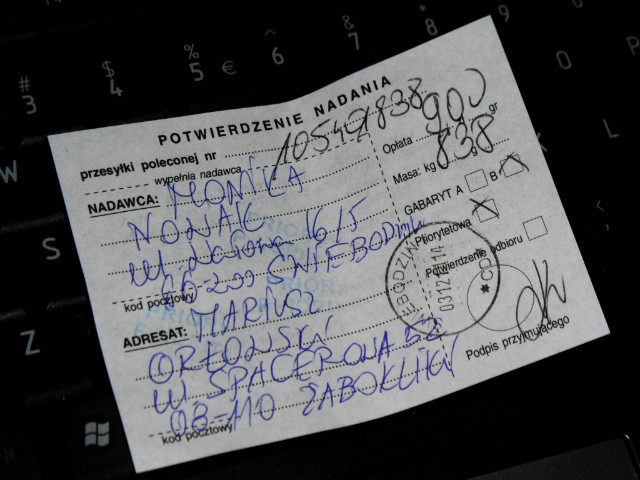 # 3
$ 4
% 5 €
^ 6
& 7
* 8
9
0
O P
W
S
Z
L
POTWIERDZENIE NADANIA
przesyłki poleconej nr
wypełnia nadawca
NADAWCA: MONIKA
NOWAK
16/5
66-200 ŚWIEBODZIN
kod pocztowy
ADRESAT: MARIUSZ
ORŁOWSKI
UL. SPACEROWA 52
08-110 ŻABOKLIKI
kod pocztowy
Opłata 900
Masa: kg 838 gr
GABARYT A B
Priorytetowa
Potwierdzenie odbioru
Podpis przyjmującego